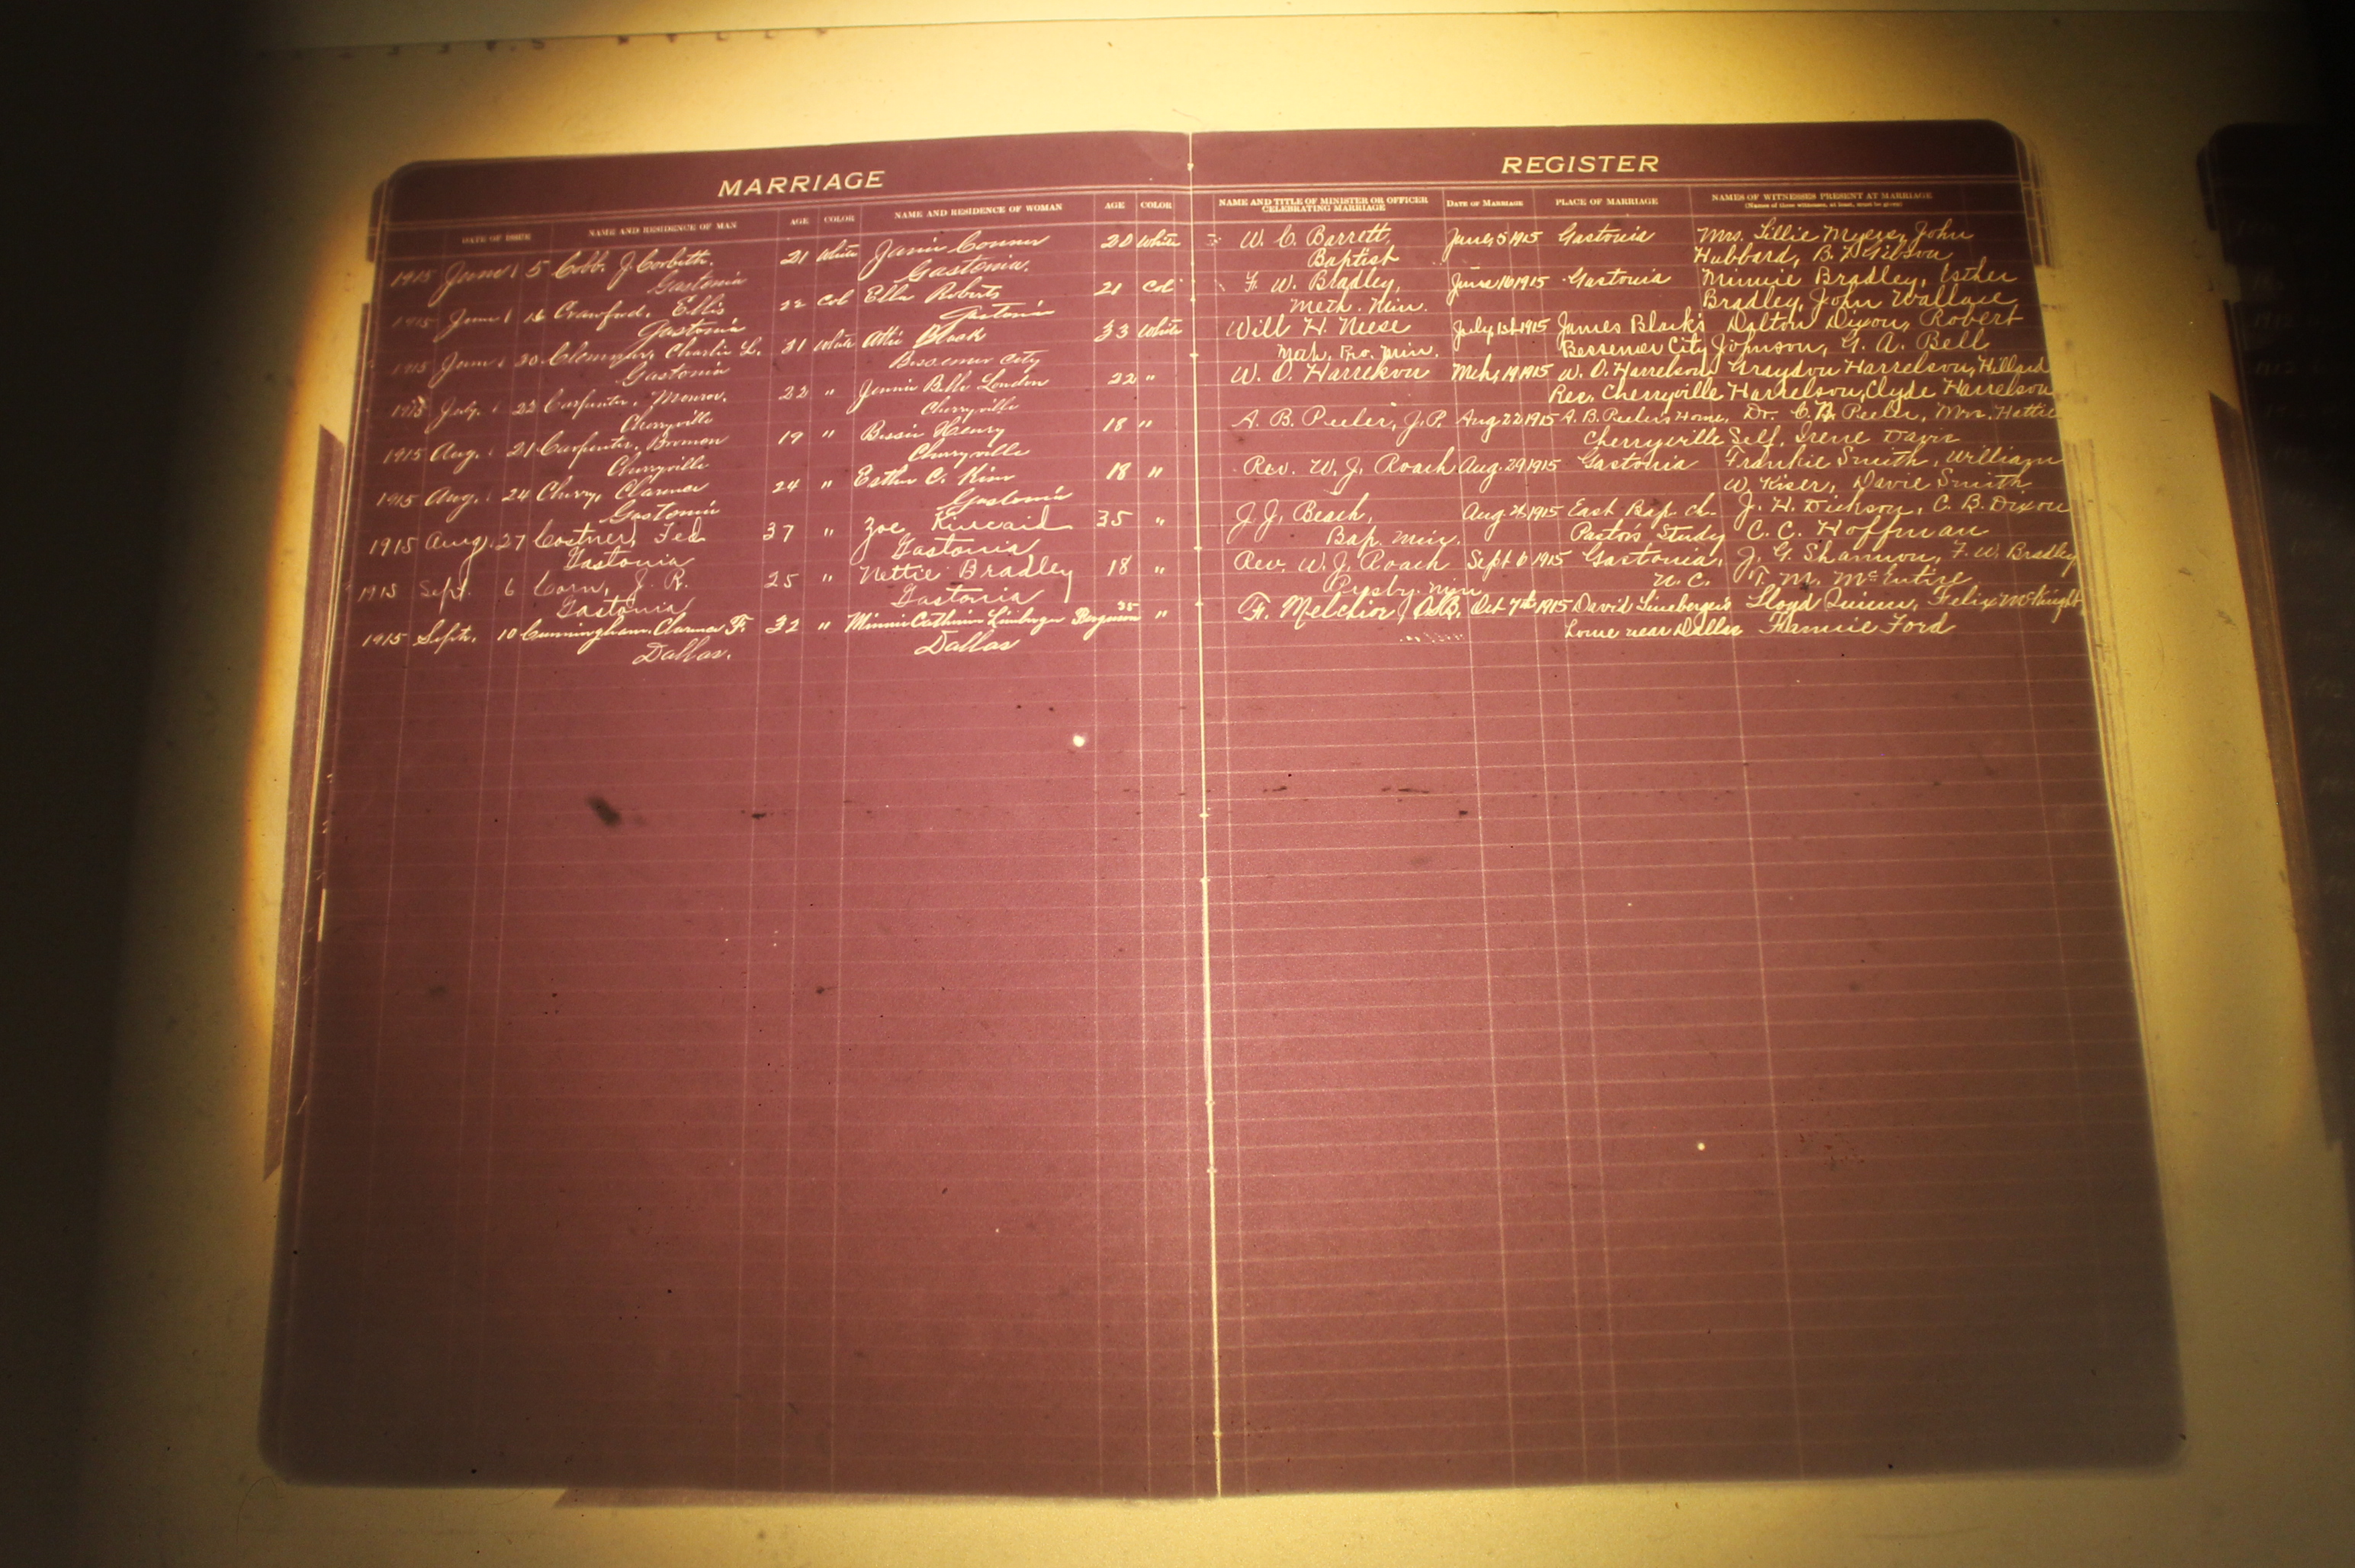 MARRIAGE REGISTER
DATE OF ISSUE NAME AND RESIDENCE OF MAN AGE COLOR NAME AND RESIDENCE OF WOMAN AGE COLOR NAME AND TITLE OF MINISTER OR OFFICER CELEBRATING MARRIAGE DATE OF MARRIAGE PLACE OF MARRIAGE NAMES OF WITNESSES PRESENT AT MARRIAGE
1915 June 5 Cobb. J. Corbett. 21 White Janie Conner 20 White W. C. Barrett, June, 5 1915 Gastonia Mrs. Lillie Myers, John
Gastonia Gastonia. Baptist Hubbard, B. Gibson
1915 June 16 Crawford, Ellis 22 Col Ella Roberts 21 Col F. W. Bradley, June 16 1915 Gastonia Minnie Bradley, Esther
Gastonia Gastonia Meth. Min. Bradley, John Wallace
1915 June 30 Charlie L. 31 White Black 33 White Will H. Neese July 1st 1915 James Black's Dalton Dixon, Robert
Gastonia Bessemer City Meth. Pro. Min. Bessemer City Johnson, G. A. Bell
1915 July 22 Carpenter, Monroe. 22 " Jennie Belle London 22 " W. O. Harrelson 1915 W. O. Harrelson Graydon Harrelson, Hillard
Cherryville Cherryville Res. Cherryville Harrelson, Clyde Harrelson
1915 Aug. 21 Carpenter, 19 " Bessie Henry 18 " A. B. Peeler, J.P. Aug 22 1915 A. B. Peeler's Home, Dr. Peeler, Mrs. Hattie
Cherryville Cherryville Cherryville Self, Irene Davis
1915 Aug. 24 Cherry, Clarence 24 " Esther C. 18 " Rev. W. J. Roach Aug. 29 1915 Gastonia Frankie Smith, William
Gastonia Gastonia W. Kiser, Davie Smith
1915 Aug. 27 Costner, Fed 37 " Zoe Kincaid 35 " J. J. Beach, Aug 1915 East Bap. ch. J. H. Dickson, C. B. Dixon
Gastonia Gastonia Bap. Min. Pastor's Study C. C. Hoffman
1915 Sept. 6 Carn, J. R. 25 " Nettie Bradley 18 " Rev. W. J. Roach Sept 6 1915 Gastonia, J. G. Shannon, F. W. Bradley
Gastonia Gastonia Presby. Min N. C. T. M. McEntire
1915 Sept. 10 Cunningham, Clarence F. 32 " Minnie Catherine Linberger Ferguson 35 " Fr. Melchior, O.S.B. Oct 7th 1915 David Lineberger's Lloyd Quinn, Felix McKnight,
Dallas. Dallas home near Dallas Fannie Ford